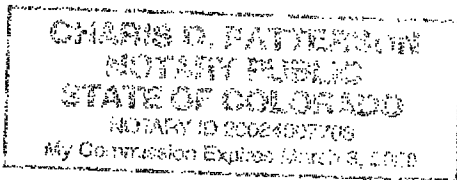 CHARIS D. PATTERSON
NOTARY PUBLIC
STATE OF COLORADO
NOTARY ID
My Commission Expires March